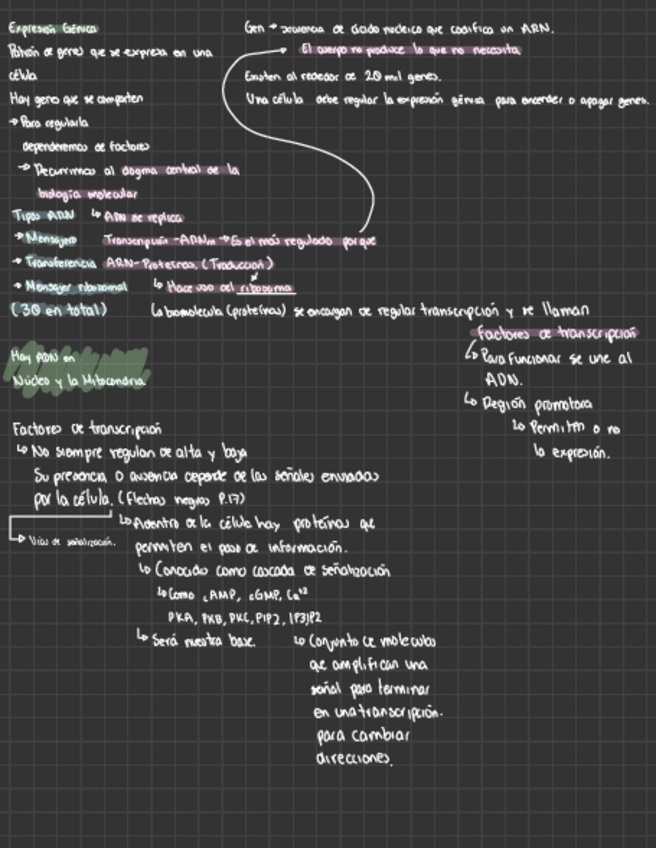 Expresión Génica
Patrón de genes que se expresa en una
célula
Hay genes que se comparten
→ Para regularla
dependeremos de factores
→ Recurrimos al dogma central de la
biología molecular
Tipos ARN ↳ ADN se replica
→ Mensajero Transcripción - ARNm → Es el más regulado porque
→ Transferencia ARN - Proteínas (Traducción)
→ Mensajer ribosomal ↳ Hace uso del ribosoma
(30 en total)
Gen → secuencia de ácido nucleico que codifica un ARN.
El cuerpo no produce lo que no necesita
Existen al rededor de 20 mil genes.
Una célula debe regular la expresión génica para encender o apagar genes.
La biomolecula (proteínas) se encargan de regular transcripción y se llaman
Factores de transcripción
↳ Para funcionar se une al
ADN.
↳ Región promotora
↳ Permiten o no
la expresión.
Hay ADN en
Núcleo y la Mitocondria
Factores de transcripción
↳ No siempre regulan de alta y baja
Su presencia o ausencia depende de las señales enviadas
por la célula. (Flechas negras P.17)
↳ Vías de señalización.
↳ Adentro de la célula hay proteínas que
permiten el paso de información.
↳ Conocido como cascada de señalización
↳ Como cAMP, cGMP, Ca+2
PKA, PKB, PKC, PIP2, IP3
↳ Será nuestra base.
↳ Conjunto de moleculas
que amplifican una
señal para terminar
en una transcripción.
para cambiar
direcciones.